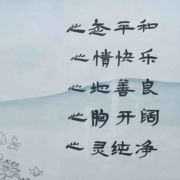 心态平和
心情快乐
心地善良
心胸开阔
心灵纯净